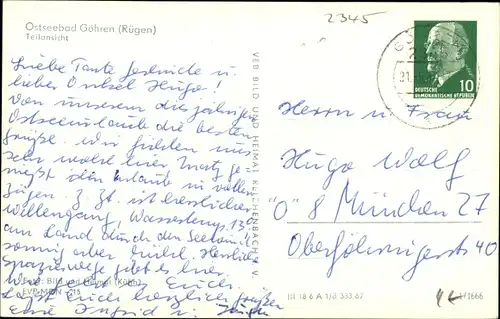 Ostseebad Göhren (Rügen)
Teilansicht
2345
Liebe Tante Gertrude u.
lieber Onkel Hugo!
Von unserem diesjährigen
Ostseeurlaub die besten
Grüße. Wir fühlen uns
sehr wohl hier
Urlaub in vollen
Zügen. Z. Zt. ist herrlicher
Wellengang, Wassertemp. 13°
am Land durch den Seewind
sonnig aber kühl. Herrliche
Spaziergänge gibt es hier.
Euch
Lasst Euch herzlich grüßen
Eure Ingrid u. Jürgen
Foto: Bild und Heimat (Kühn)
EVP MDN
VEB BILD UND HEIMAT REICHENBACH I. V.
DEUTSCHE
DEMOKRATISCHE REPUBLIK
10
Herrn u. Frau
Hugo Wolf
"O" 8 München 27
Oberföhringerstr 40
III 18 6 A 1/B 353/67
1666